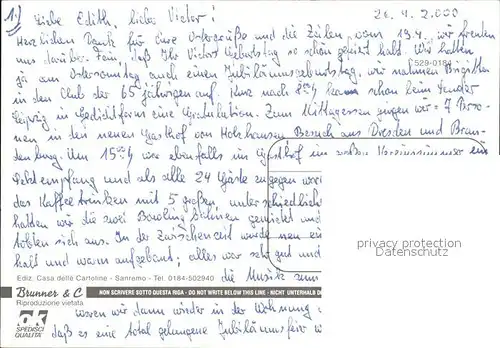 1.)
26.4.2000
Liebe Edith, lieber Victor!
Herzlichen Dank für Eure Ostergrüße und die Zeilen vom 19.4. wir freuten
uns darüber. Fein, daß Ihr Victors Geburtstag so schön gefeiert habt. Wir hatten
ja am Ostersonntag auch einen Jubiläumsgeburtstag, wir nahmen Brigitte
in den Club der 65 jährigen auf. Kurz nach 8 kam schon beim Sender
Leipzig in Gedichtform eine Gratulation. Zum Mittagessen gingen wir - 7 Perso-
nen in den neuen Gasthof von Holzhausen. Besuch aus Dresden und Bran-
denburg. Um 15 war ebenfalls im Gasthof im großen Vereinszimmer ein
Sektempfang und als alle 24 Gäste zugegen
das Kaffeetrinken mit 5 großen, unterschiedlich
hatten wir die zwei Bowling Bahnen gemietet und
tobten sich aus. In der Zwischenzeit wurde
kalt und warm aufgebaut; alles war sehr gut und
die Musik zum
waren wir dann wieder in der Wohnung
daß es eine total gelungene Jubiläumsfeier
529-018
privacy protection
Datenschutz
Ediz. Casa delle Cartoline - Sanremo - Tel. 0184-502940
Brunner & C
Riproduzione vietata
NON SCRIVERE SOTTO QUESTA RIGA - DO NOT WRITE BELOW THIS LINE - NICHT UNTERHALB D
SPEDISCI
QUALITÀ